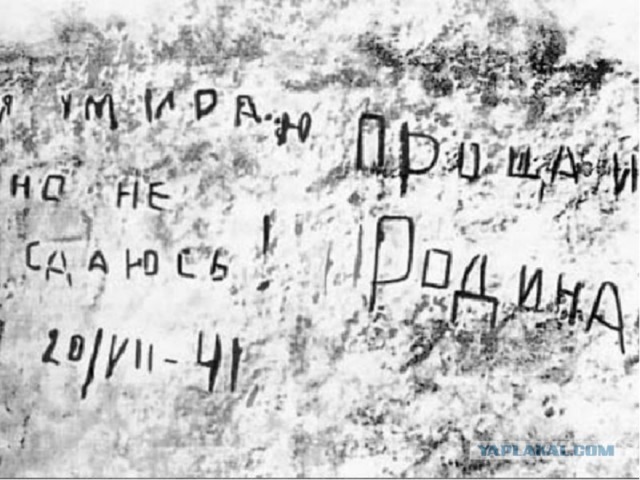 Я УМИРАЮ
НО НЕ
СДАЮСЬ!
20/VII-41
ПРОЩАЙ
РОДИНА
YAPLAKAL.COM